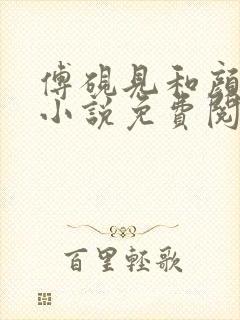 傅硯見和顏
小說免費閱
百里輕歌